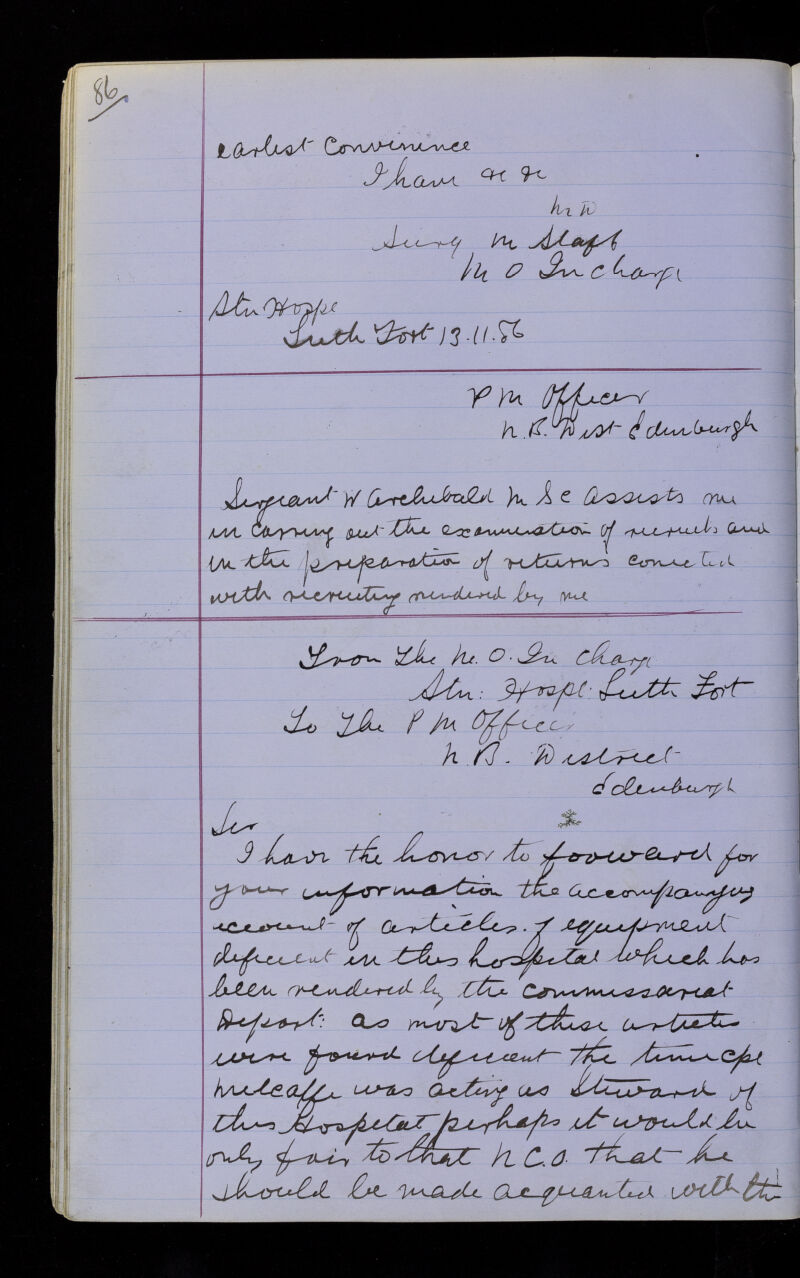 86
earlest Convinence
I have &c &c
M D
Surg M Staff
M O In Charge
Stn Hospl
Leith Fort 13.11.86
P M Officer
N.B. Dist Edinburgh
Sergeant W Archibald M S C Assists me
in carring out the examination of recruits and
in the preparation of returns conected
with recruiting rendered by me
From The M.O. In Charge
Stn: Hospl: Leith Fort
To The P M Officer
N.B. District
Edenburgh
Sir
I have the honor to foreward for
your information the accompanying
account of articles of equipment
deficient in this hospital which has
been rendered by the commissariat
Depart: as most of these articles
were found deficient the time Cpl
Metcaffe was acting as Steward of
this Hospetal perhaps it would be
only fair to that N.C.O. that he
should be made acquanted with the